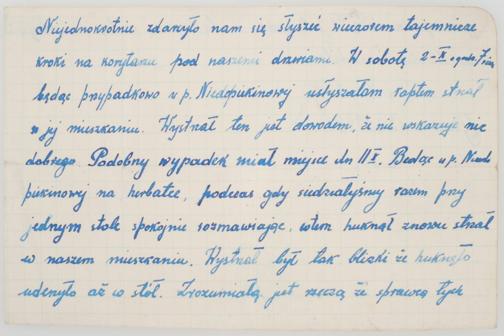 Niejednokrotnie zdarzyło nam się słyszeć wieczorem tajemnicze
kroki na korytarzu pod naszemi drzwiami. W sobotę 2-X o godz. 7
będąc przypadkowo u p. Niedopiekinowej usłyszałam raptem strzał
w jej mieszkaniu. Wystrzał ten jest dowodem, że nie wskazuje nic
dobrego. Podobny wypadek miał miejsce dn 11 X. Będąc u p. Niedo
piekinowej na herbatce, podczas gdy siedziałyśmy razem przy
jednym stole spokojnie rozmawiając, wtem huknął znowu strzał
w naszem mieszkaniu. Wystrzał był tak bliski że huknęło
uderzyło aż w stół. Zrozumiałą jest rzeczą że sprawcą tych